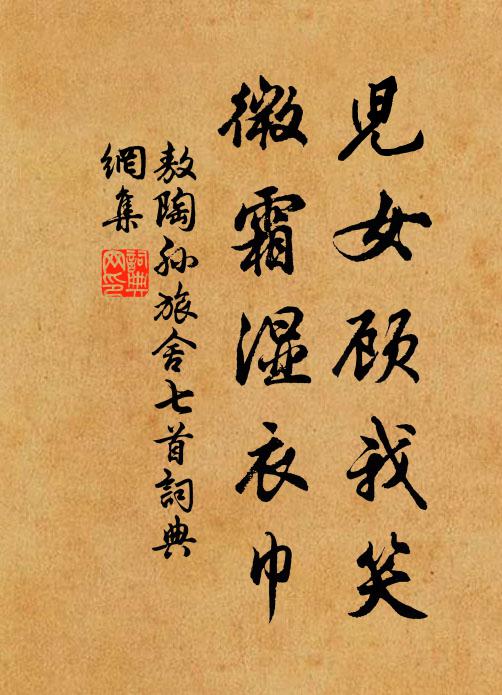 児女顾我笑
微霜湿衣巾
敖陶孙旅舍七首詞典
網集
詞典
网印